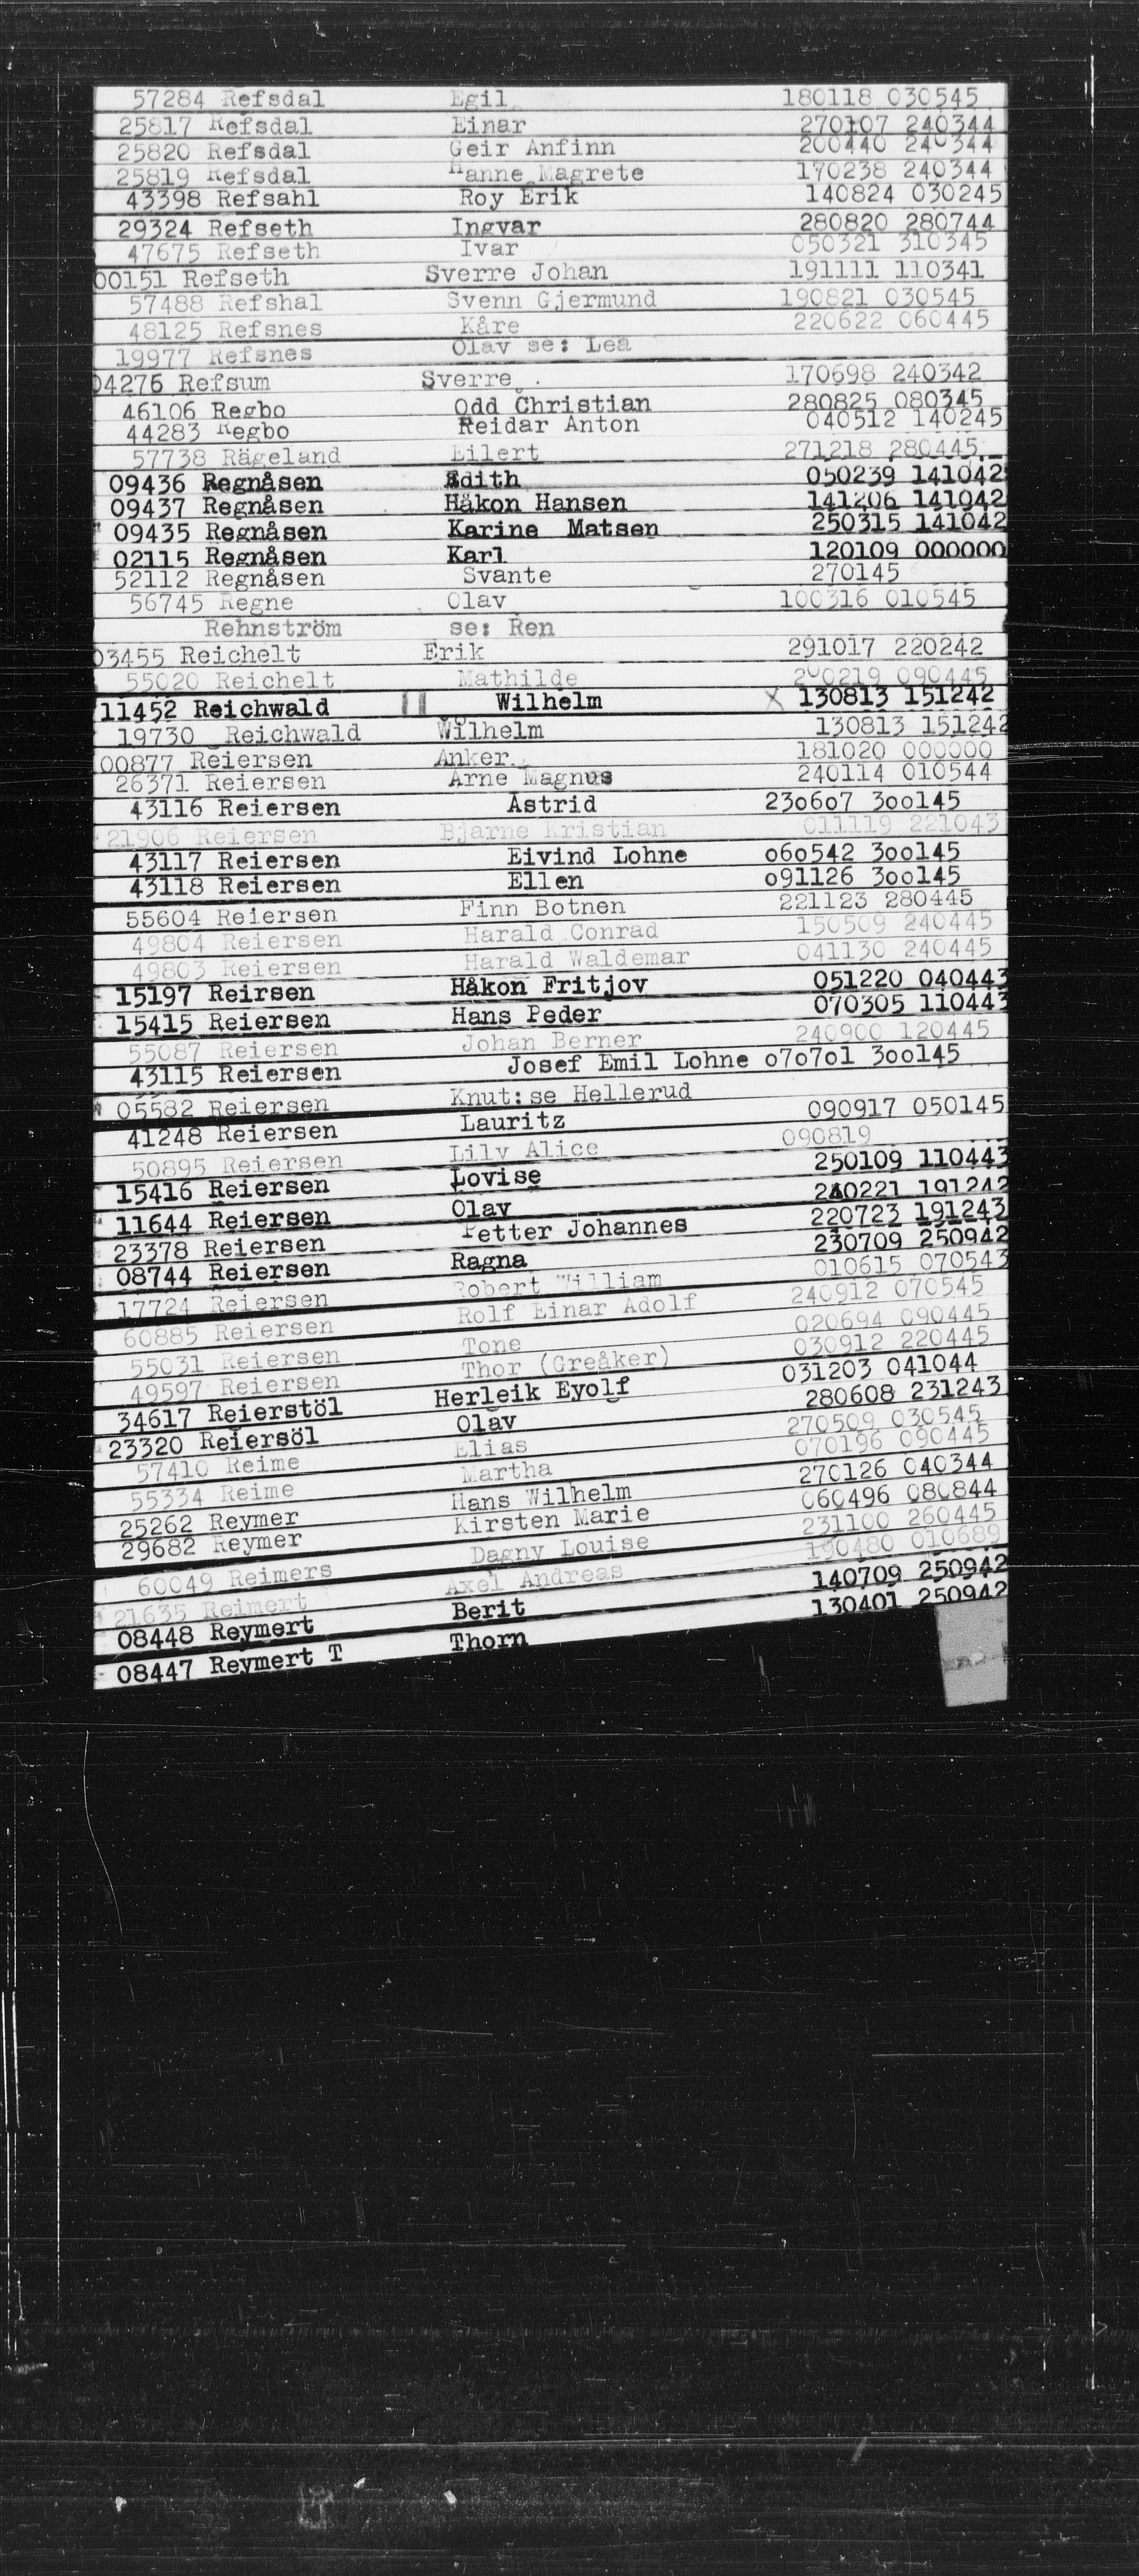 57284 Refsdal Egil 180118 030545
25817 Refsdal Einar 270107 240344
25820 Refsdal Geir Anfinn 200440 240344
25819 Refsdal Hanne Magrete 170238 240344
43398 Refsahl Roy Erik 140824 030245
29324 Refseth Ingvar 280820 280744
47675 Refseth Ivar 050321 310345
00151 Refseth Sverre Johan 191111 110341
57488 Refshal Svenn Gjermund 190821 030545
48125 Refsnes Kåre 220622 060445
19977 Refsnes Olav se: Lea
04276 Refsum Sverre 170698 240342
46106 Regbo Odd Christian 280825 080345
44283 Regbo Reidar Anton 040512 140245
57738 Rägeland Eilert 271218 280445
09436 Regnåsen Edith 050239 141042
09437 Regnåsen Håkon Hansen 141206 141042
09435 Regnåsen Karine Matsen 250315 141042
02115 Regnåsen Karl 120109 000000
52112 Regnåsen Svante 270145
56745 Regne Olav 100316 010545
Rehnström se: Ren
03455 Reichelt Erik 291017 220242
55020 Reichelt Mathilde 200219 090445
11452 Reichwald Wilhelm X 130813 151242
19730 Reichwald Wilhelm 130813 151242
00877 Reiersen Anker 181020 000000
26371 Reiersen Arne Magnus 240114 010544
43116 Reiersen Astrid 230607 300145
21906 Reiersen Bjarne Kristian 011119 221043
43117 Reiersen Eivind Lohne 060542 300145
43118 Reiersen Ellen 091126 300145
55604 Reiersen Finn Botnen 221123 280445
49804 Reiersen Harald Conrad 150509 240445
49803 Reiersen Harald Waldemar 041130 240445
15197 Reirsen Håkon Fritjov 051220 040443
15415 Reiersen Hans Peder 070305 110443
55087 Reiersen Johan Berner 240900 120445
43115 Reiersen Josef Emil Lohne 070701 300145
05582 Reiersen Knut: se Hellerud
41248 Reiersen Lauritz 090917 050145
50895 Reiersen Lily Alice 090819
15416 Reiersen Lovise 250109 110443
11644 Reiersen Olav 240221 191242
23378 Reiersen Petter Johannes 220723 191243
08744 Reiersen Ragna 230709 250942
17724 Reiersen Robert William 010615 070543
60885 Reiersen Rolf Einar Adolf 240912 070545
55031 Reiersen Tone 020694 090445
49597 Reiersen Thor (Greåker) 030912 220445
34617 Reierstöl Herleik Eyolf 031203 041044
23320 Reiersöl Olav 280608 231243
57410 Reime Elias 270509 030545
55334 Reime Martha 070196 090445
25262 Reymer Hans Wilhelm 270126 040344
29682 Reymer Kirsten Marie 060496 080844
60049 Reimers Dagny Louise 231100 260445
21635 Reimert Axel Andreas 190480 010689
08448 Reymert Berit 140709 250942
08447 Reymert T Thorn 130401 250942